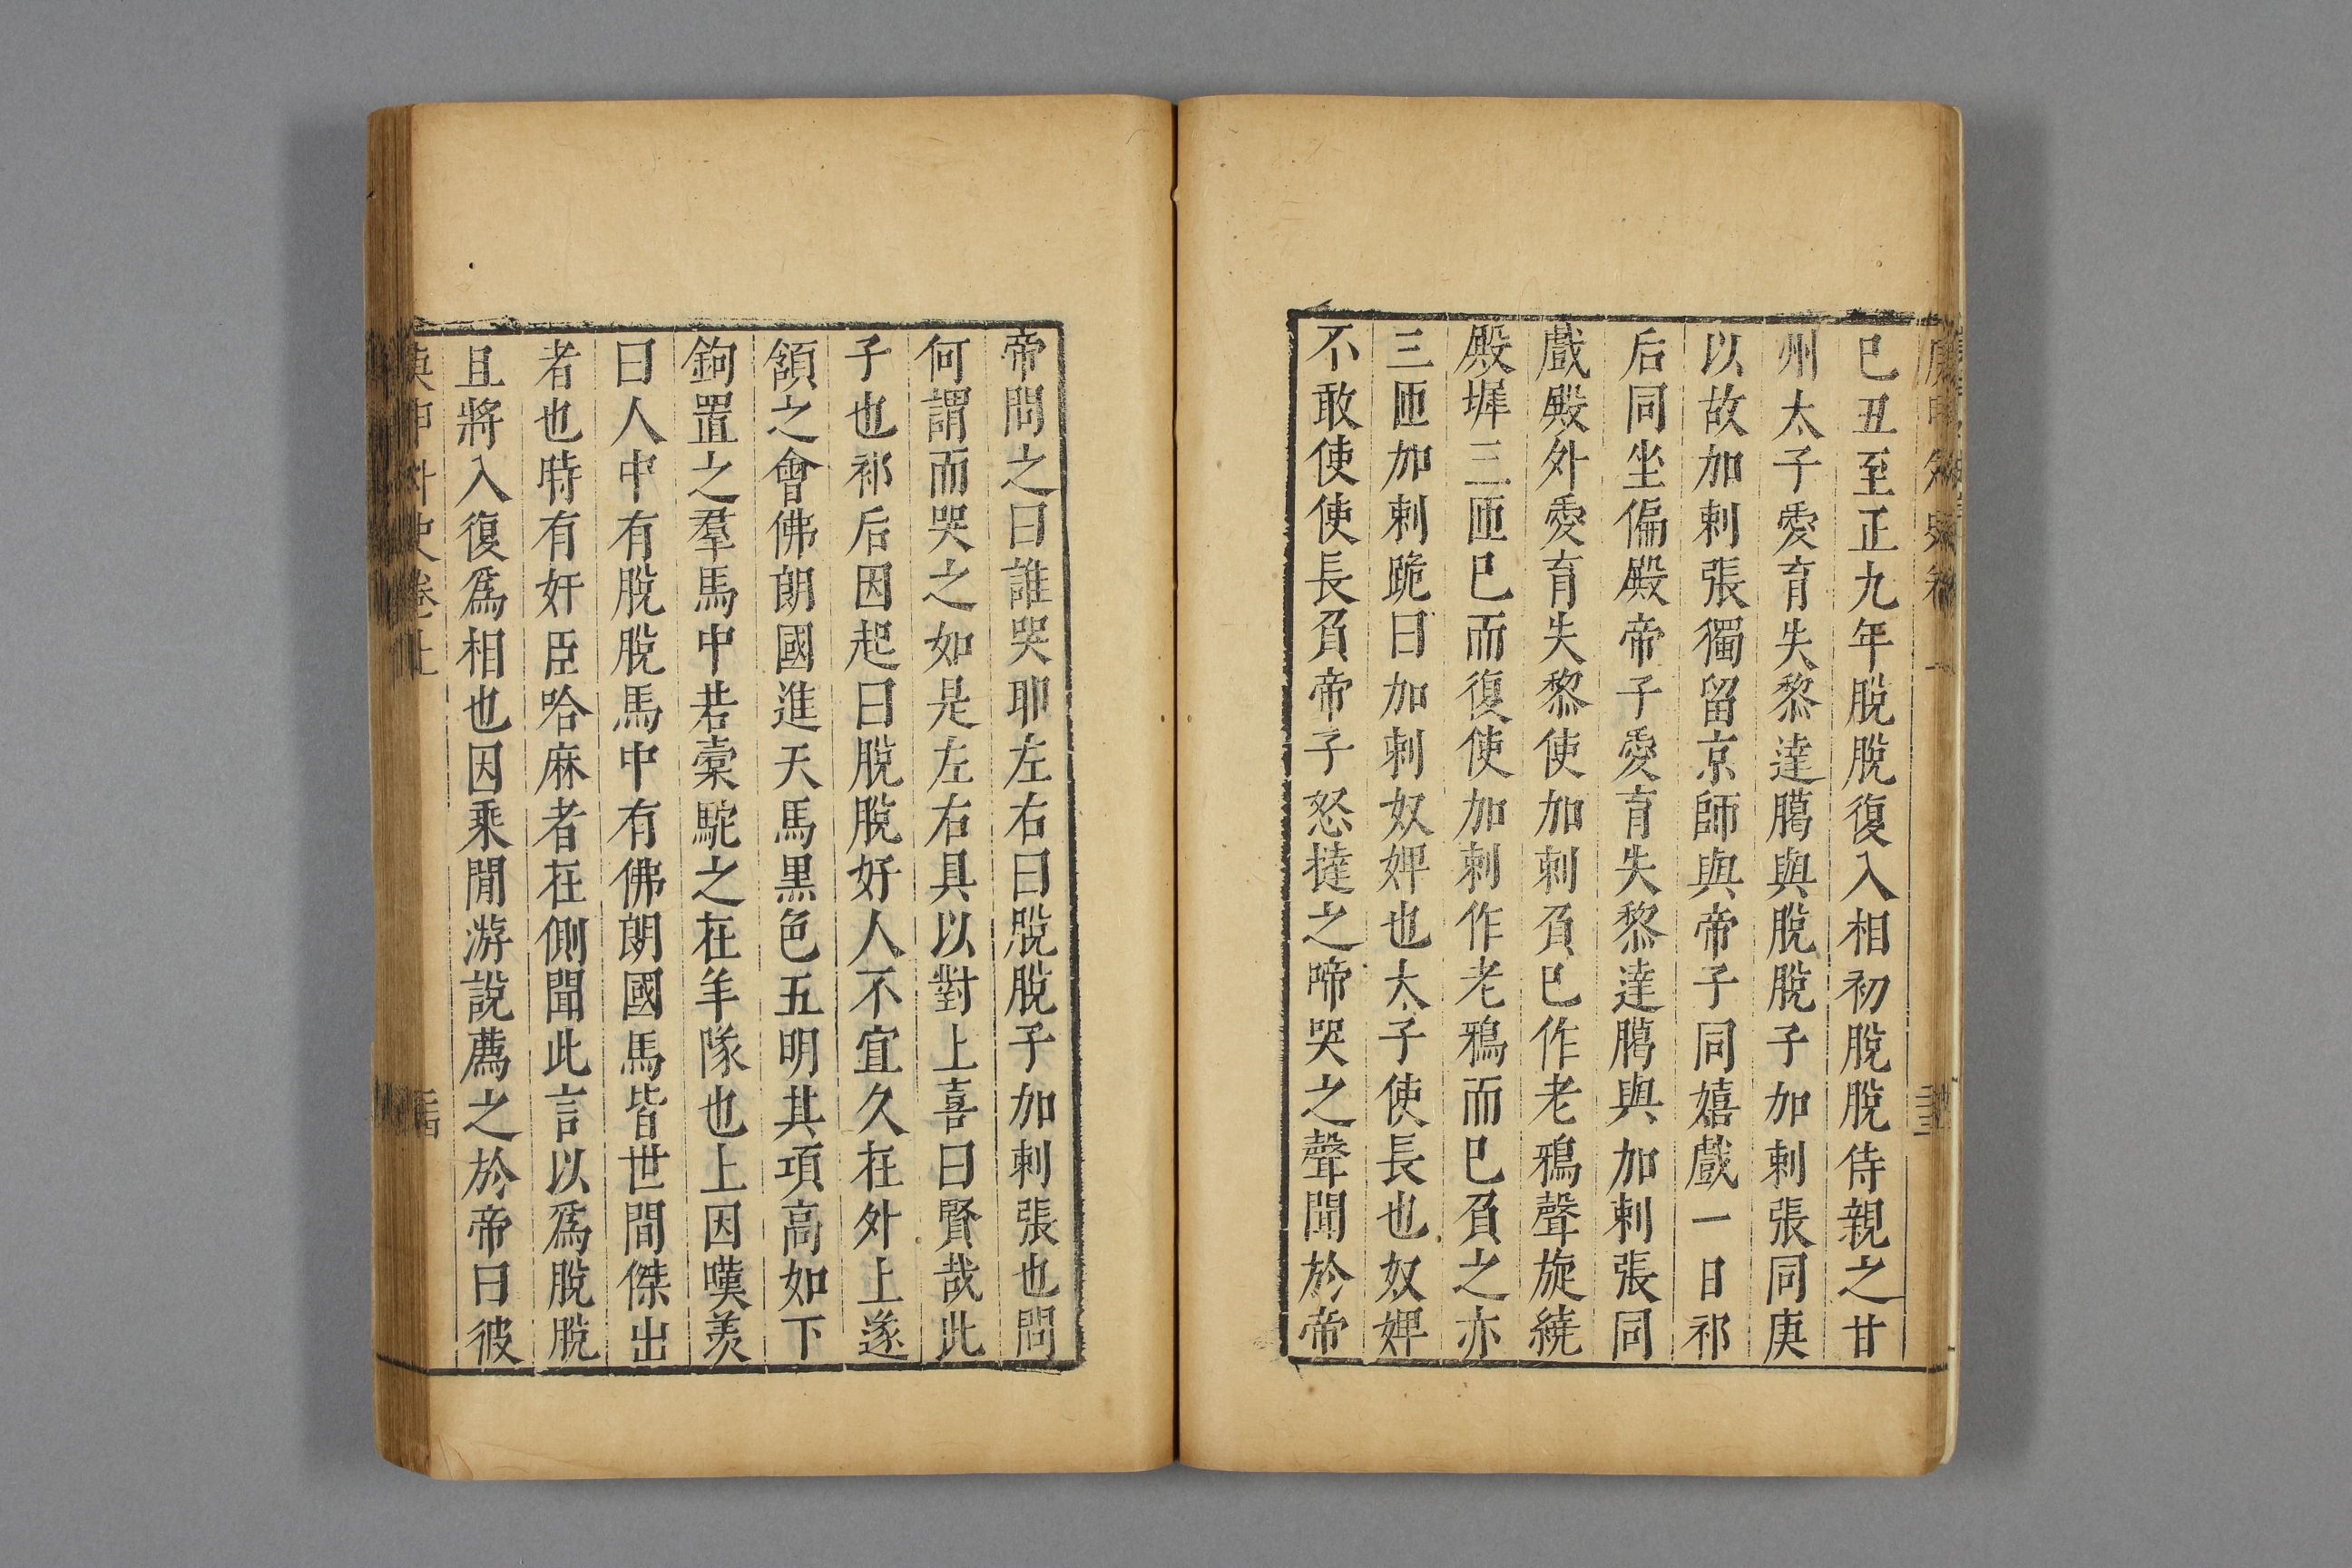 已丑至正九年脫脫復入相初脫脫侍親之甘
州太子愛育失黎達臈與脫脫子加剌張同庚
以故加剌張獨留京師與帝子同嬉戲一日祁
后同坐偏殿帝子愛育失黎達臈與加剌張同
戲殿外愛育失黎使加剌負已作老鴉聲旋繞
殿墀三匝已而復使加剌作老鴉而已負之亦
三匝加剌跪曰加剌奴婢也太子使長也奴婢
不敢使使長負帝子怒撻之啼哭之聲聞於帝
帝問之曰誰哭耶左右曰脫脫子加剌張也問
何謂而哭之如是左右具以對上喜曰賢哉此
子也祁后因起曰脫脫好人不宜久在外上遂
頷之會佛朗國進天馬黒色五明其項高如下
鉤置之羣馬中若槖駝之在羊隊也上因嘆羨
曰人中有脫脫馬中有佛朗國馬皆世間傑出
者也時有奸臣哈麻者在側聞此言以爲脫脫
且將入復爲相也因乘閒游說薦之於帝曰彼
庚申外史卷上